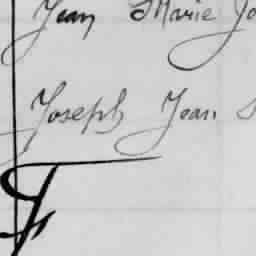 Jean Marie Jo
Joseph Jean